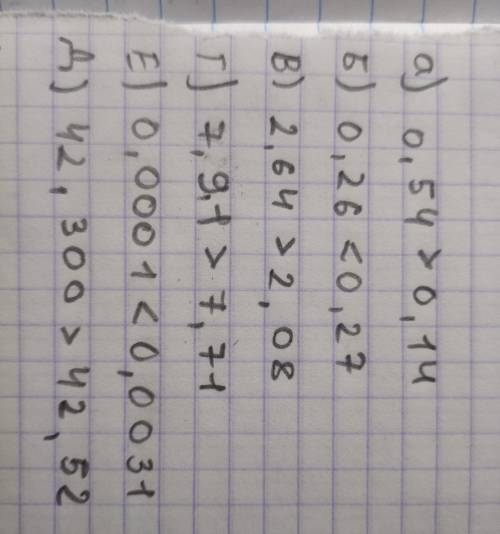 а) 0,54 > 0,14
Б) 0,26 < 0,27
В) 2,64 > 2,08
Г) 7,91 > 7,71
Е) 0,0001 < 0,0031
Д) 42,300 > 42,52